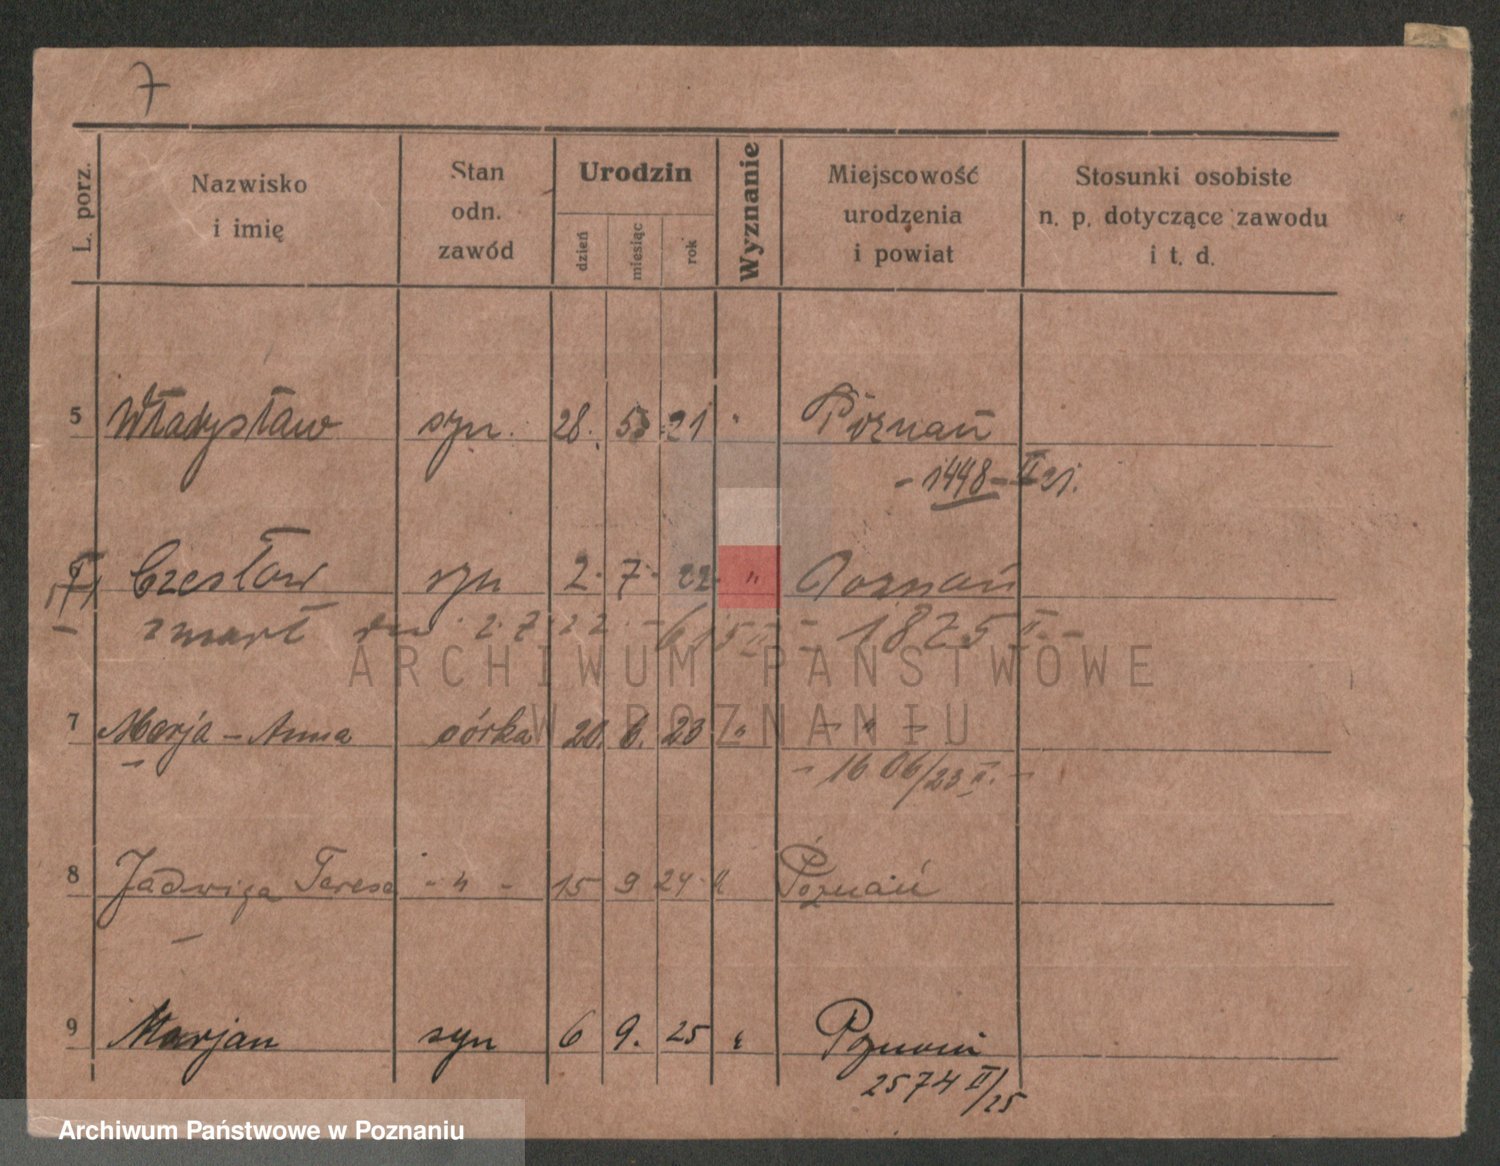 7
L. porz. Nazwisko i imię Stan odn. zawód Urodzin dzień miesiąc rok Wyznanie Miejscowość urodzenia i powiat Stosunki osobiste n. p. dotyczące zawodu i t. d.
5 Władysław syn. 28. 5 21 " Poznań
- 1448 - II 21.
Czesław syn 2. 7. 22. " Poznań
zmarł dn. 2.7.22. - 615 II - 1875 II. -
ARCHIWUM PAŃSTWOWE
W POZNANIU
7 Marja - Anna córka 20. 6. 23 " - " -
- 1606/23 II. -
8 Jadwiga Teresa - " - 15 9 24 " Poznań
9 Marjan syn 6 9. 25 " Poznań
2574 II/25
Archiwum Państwowe w Poznaniu